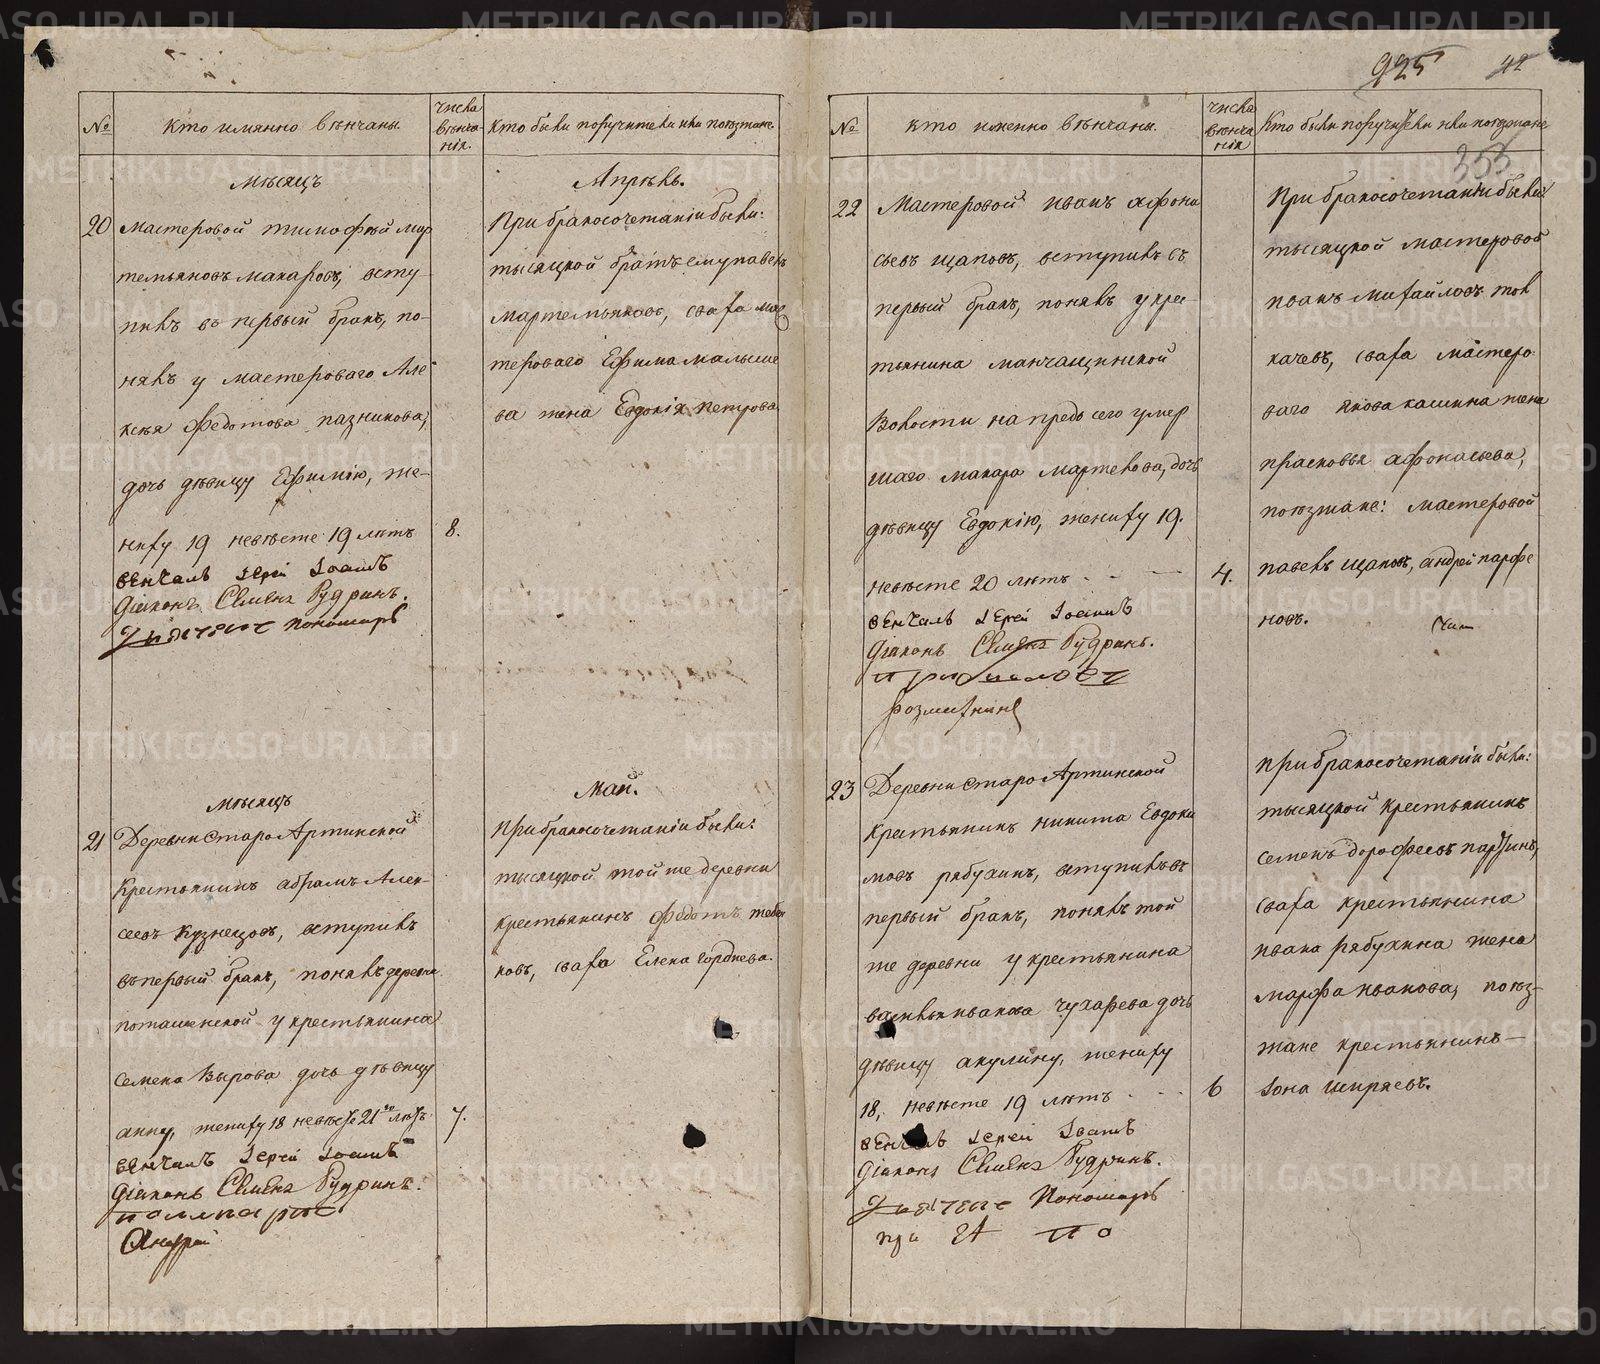 925 42
353
№ Кто имянно вѣнчаны. числа вѣнчанія. Кто были поручители или поѣзжане
Мѣсяцъ Апрѣль.
20 Мастеровой тимофѣй мар
темьяновъ макаровъ, всту-
пилъ въ первый бракъ, по-
нялъ у мастероваго Але
ксѣя Федотова пазникова,
дочь дѣвицу Ефимію, же-
ниху 19 невѣсте 19 лѣтъ 8.
вЕнчалъ іЕрей Іоаннъ
Діаконъ Семенъ Рудринъ.
пономарь
При бракосочетаніи были:
тысяцкой братъ ему павелъ
мартемьяновъ, сваха мас
тероваго Ефима малыше
ва жена Евдокія петрова.
Мѣсяцъ Май.
21 Деревни Старо Артинской
Крестьянинъ абрамъ Алек-
сеевъ Кузнецовъ, вступилъ
въ первый бракъ, понялъ деревни
поташенской у крестьянина
семена Вырова дочь дѣвицу
анну, жениху 18 невѣсте 21 лѣтъ 7.
вЕнчалъ Іерей Іоаннъ
Діаконъ Семенъ Рудринъ.
Андрей
При бракосочетаніи были:
тысяцкой той же деревни
крестьянинъ Федотъ
ковъ, сваха Елена Гордиева.
№ Кто именно вѣнчаны. числа вѣнчанія Кто были поручители или поѣзжане
22 Мастеровой иванъ афона
сьевъ щаповъ, вступилъ въ
первый бракъ, понялъ у крес-
тьянина манчащинской
Волости на предь сего умер
шаго макара мартелова, дочь
дѣвицу Евдокію, жениху 19.
невѣсте 20 лѣтъ 4.
вЕнчалъ іЕрей Іоаннъ
Діаконъ Семенъ Рудринъ.
При бракосочетаніи были:
тысяцкой мастеровой
иванъ михайловъ тол
качевъ, сваха мастеро-
ваго якова кашина жена
прасковья афонасьева,
поѣзжане: мастеровой
павелъ щаповъ, андрей парфе
новъ.
23 Деревни старо Артинской
Крестьянинъ никита Евдоки
мовъ рябухинъ, вступилъ въ
первый бракъ, понялъ той
же деревни у крестьянина
василья иванова чухарева дочь
дѣвицу акулину, жениху
18, невѣсте 19 лѣтъ 6
вЕнчалъ іерей Іоаннъ
Діаконъ Семенъ Рудринъ.
Пономарь
при
При бракосочетаніи были:
тысяцкой крестьянинъ
семенъ дорофеевъ
сваха крестьянина
ивана рябухина жена
марфа иванова, поѣз-
жане крестьянинъ
Іона ширяевъ.